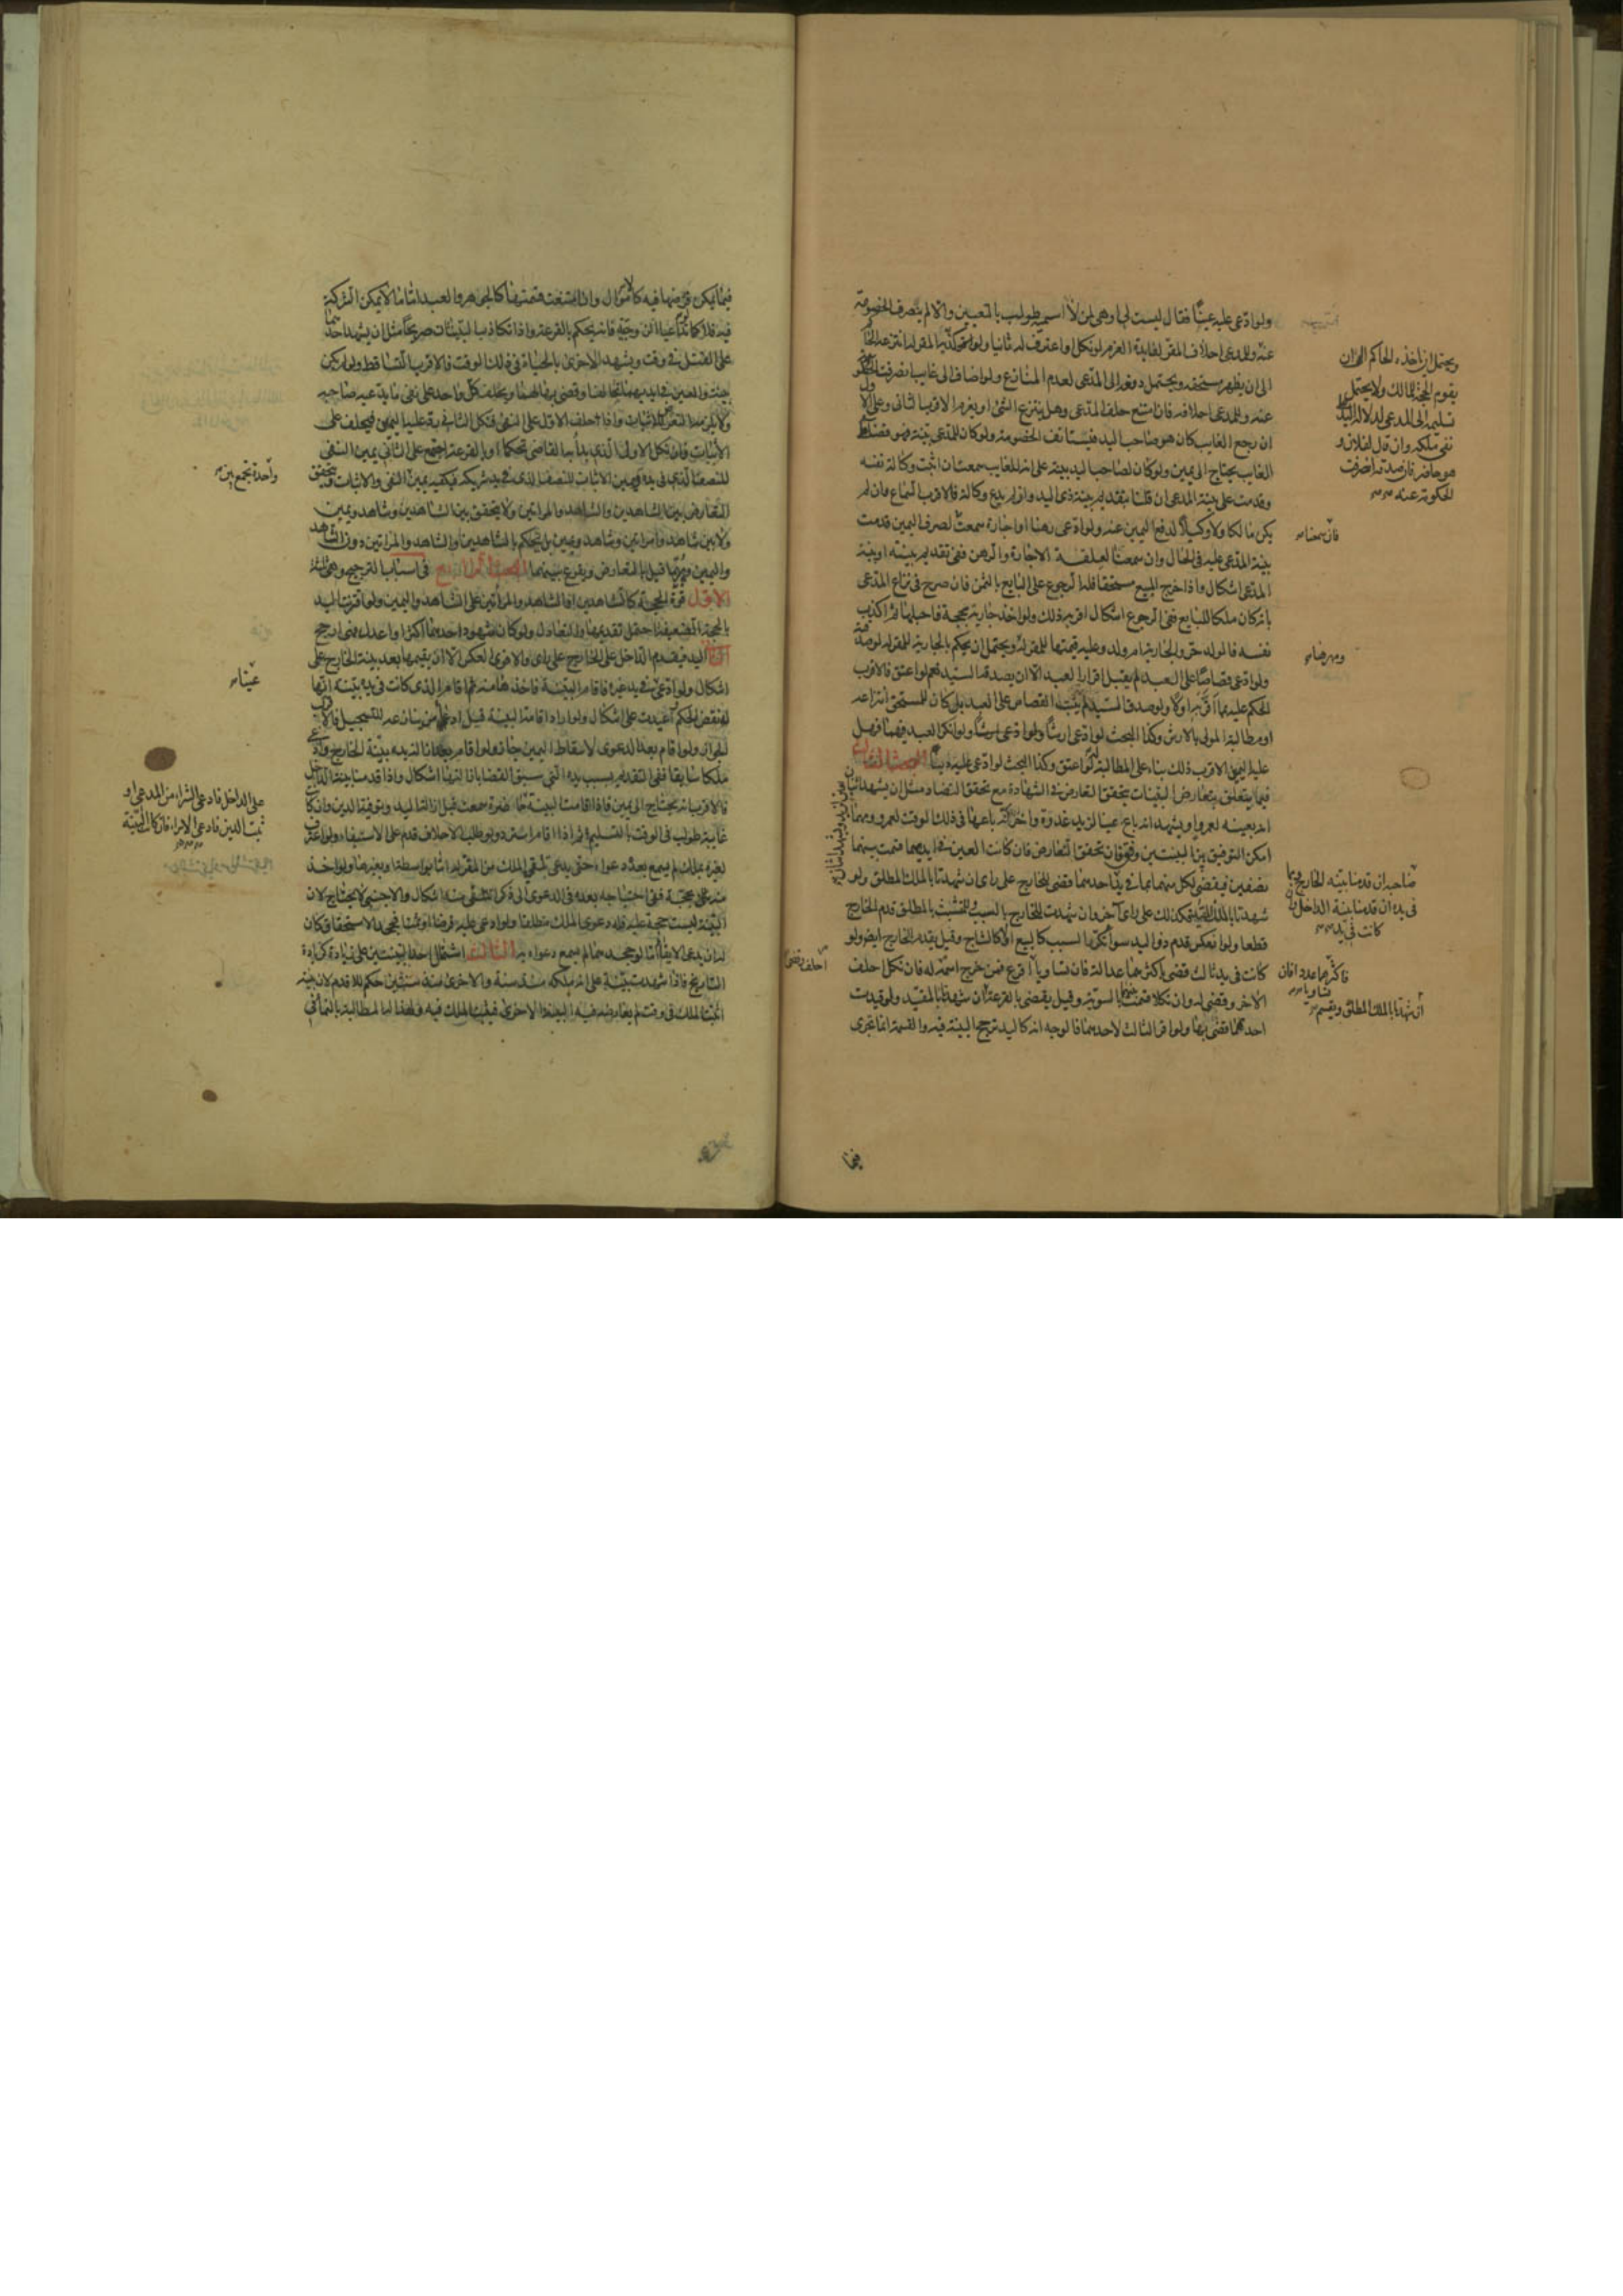 ولو ادعى عليه عينا فقال ليست لي او هي لمن لا اسميه طولب بالتعيين والا لم ينصرف الخصومة
عنه وللمدعي احلاف المقر لفايدة الغرم لو نكل او اعترف له ثانيا ولو
الى ان يظهر مستحقه ويحتمل دفعه الى المدعي لعدم المنازع ولو اضاف الى غايب انصرفت الحكومة
عنه وللمدعي احلافه فان امتنع حلف المدعي وهل ينتزع الشئ او يغرم الاقرب الثاني وعلى الاول
ان رجع الغايب كان هو صاحب اليد فيستانف الخصومة ولو كان للمدعي بينة فهو قضاء على
الغايب يحتاج الى يمين ولو كان لصاحب اليد بينة على انه للغايب سمعت ان اثبت وكالة نفسه
وقدمت على بينة المدعي ان قلنا بتقديم بينة ذي اليد وان لم يدع وكالة فالاقرب السماع وان لم
يكن مالكا ولا وكيلا لدفع اليمين عنه ولو ادعى رهنا او اجارة سمعت لصرف اليمين قدمت
بينة المدعي عليه في الحال وان سمعت لعلقة الاجارة والرهن ففي تقديم بينته او بينة
المدعي اشكال واذا خرج المبيع مستحقا فله الرجوع على البايع بالثمن فان صرح في نزاع المدعي
بانه كان ملكا للبايع ففي الرجوع اشكال اقربه ذلك ولو اخذ جارية بحجة فاحبلها ثم اكذب
نفسه فالولد حر والجارية ام ولد وعليه قيمتها للمقر له ويحتمل ان يحكم بالجارية للمقر له لو صدقته
ولو ادعى قصاصا على العبد لم يقبل اقرار العبد الا ان يصدقه السيد نعم لو اعتق فالاقرب
الحكم عليه بما اقر به اولا ولو صدقه السيد لم يثبت القصاص على العبد بل كان للمستحق انتزاعه
او مطالبة المولى بالارش وكذا البحث لو ادعى ارشا ولو انكر العبد فهل
عليه اليمين الاقرب ذلك بناء على المطالبة لو اعتق وكذا البحث لو ادعى عليه دينا البحث الثالث
فيما يتعلق بتعارض البينات يتحقق التعارض في الشهادة مع تحقق التضاد مثل ان يشهد اثنان بحق لزيد ويشهد اثنان
انه بعينه لعمرو او يشهد انه باع عينا لزيد غدوة واخران انه باعها في ذلك الوقت لعمرو ومهما
امكن التوفيق بين البينتين وفق فان تحقق التعارض فان كانت العين في ايديهما قسمت بينهما
نصفين فيقضى لكل منهما بما في يد صاحبه ان قدمنا بينة الخارج وبما في يده ان قدمنا بينة الداخل وان كانت في يد احدهما قضي للخارج على راى ان شهدتا بالملك المطلق ولو
شهدتا بالملك المقيد فكذلك على راى اخر وان شهدت للخارج بالسبب وللمتشبث بالمطلق قدم الخارج
قطعا ولو انعكس قدم ذو اليد سواء تكرر السبب كالبيع او لا كالنتاج وقيل يقدم الخارج ايضا ولو
كانت في يد ثالث قضي باكثرهما عدالة فان تساويا اقرع فمن خرج اسمه احلف وقضي له فان نكل احلف
الاخر وقضي له وان نكلا قسمت بينهما بالسوية وقيل يقضى بالقرعة ان شهدتا بالمقيد ولو قيدت
احدهما قضي بها ولو اقر الثالث لاحدهما فالوجه انه كاليد ترجح البينة فيه والقسمة انما تجرى
ويحتمل ان ياخذه الحاكم الى ان
يقوم الحجة لمالك ولا يحتمل
تسليمه الى المدعي لدلالة اليد على
نفي ملكه وان قال لفلان و
هو حاضر فان صدقه انصرفت
الحكومة عنه
فان سمعناه
ومهرها
صاحبه ان قدمنا بينة الخارج وبما
في يده ان قدمنا بينة الداخل وان
كانت في يد
فاكثرهما عددا فان
تساويا
ان شهدتا بالملك المطلق ويقسم
احلف وقضي
فيما
فيما يمكن فرضها فيه كالاموال وان امتنعت قسمتها كالجوهر والعبد اما ما لا يمكن الشركة
فيه فلا كما تداعيا الزوجية فانه يحكم بالقرعة واذا تكاذبت البينات صريحا مثل ان يشهد احدهما
على القتل في وقت ويشهد الاخرى بالحياة في ذلك الوقت فالاقرب التساقط ولو لم يكن
بينة والعين في ايديهما تحالفا وقضي بها لهما ويحلف كل واحد على نفي ما يدعيه صاحبه
ولا يلزمه التعرض للاثبات واذا حلف الاول على النفي فنكل الثاني رد عليه اليمين فيحلف على
الاثبات فان نكل الاول الذي بدا به القاضي تحكما او بالقرعة اجتمع على الثاني يمين النفي
للنصف الذي في يده ويمين الاثبات للنصف الذي في يد شريكه فيكفيه يمين واحدة تجمع بين النفي والاثبات ويتحقق
التعارض بين الشاهدين والشاهد والمراتين ولا يتحقق بين الشاهدين وشاهد ويمين
ولا بين شاهد وامراتين وشاهد ويمين بل يحكم بالشاهدين او الشاهد والمراتين دون الشاهد
واليمين وربما قيل بالتعارض ويقرع بينهما البحث الرابع في اسباب الترجيح وهي ثلثة
الاول قوة الحجة كالشاهدين او الشاهد والمراتين على الشاهد واليمين ولو اقترنت اليد
بالحجة الضعيفة احتمل تقديمها والتعادل ولو كان شهود احدهما اكثر او اعدل فهي ارجح
الثاني اليد فيقدم الداخل على الخارج على راى والاقوى العكس الا ان يقيمها بعد بينة الخارج على
اشكال ولو ادعى عينا في يد غيره فاقام البينة فاخذها منه ثم اقام الذي كانت في يده بينة انها
له نقض الحكم اعيدت على اشكال ولو اراد اقامة البينة قبل ادعاء من ينازعه للتسجيل فالاقرب
الجواز ولو اقام بعد الدعوى لاسقاط اليمين جاز ولو اقام بعد ازالة يده ببينة الخارج وادعى
ملكا سابقا ففي التقديم بسبب يده التي سبق القضاء بازالتها اشكال واذا قدمنا بينة الداخل
فالاقرب انه يحتاج الى يمين فاذا اقامت البينة على الداخل فادعى الشراء من المدعي او ثبت الدين فادعى الابراء فان كانت البينة حاضرة سمعت قبل ازالة اليد وتوفية الدين وان كانت
غايبة طولب في الوقت بالتسليم ثم اذا اقام استرد ولو طلب الاحلاف قدم على الاستيفاء ولو اعترف
لغيره بملك لم يسمع بعده دعواه حتى يدعي تلقي الملك من المقر له اما بواسطة او بغيرها ولو اخذ
منه بحجة ففي احتياجه بعده في الدعوى الى ذكر التلقي منه اشكال والاجنبي لا يحتاج لان
البينة ليست حجة عليه فله دعوى الملك مطلقا ولو ادعى عليه قرضا او ثمنا فجحد الاستحقاق كان
له ان يدعي الايفاء اما لو جحدهما لم يسمع دعواه به الثالث اشتمال احدى البينتين على زيادة كزيادة
التاريخ فاذا شهدت بينة على انه ملكه منذ سنة والاخرى منذ سنتين حكم للاقدم لان بينته
اثبتت الملك في وقت لم يعارضه فيه البينة الاخرى فيثبت الملك فيه ولهذا له المطالبة بالنماء في
واحدة تجمع بين
عينا
على الداخل فادعى الشراء من المدعي او
ثبت الدين فادعى الابراء فان كانت البينة